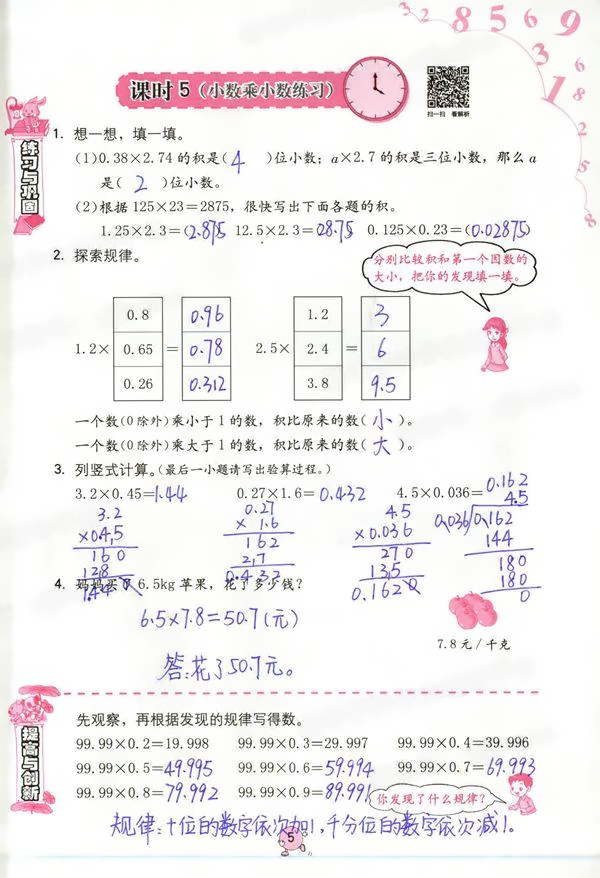 3 2 8 5 6 9 3 1 6 8 2 5 8
课时5（小数乘小数练习）
扫一扫 看解析
练习与巩固
1. 想一想，填一填。
(1)0.38×2.74的积是( 4 )位小数；a×2.7的积是三位小数，那么a
是( 2 )位小数。
(2)根据125×23=2875，很快写出下面各题的积。
1.25×2.3=(2.875) 12.5×2.3=(28.75) 0.125×0.23=(0.02875)
2. 探索规律。
分别比较积和第一个因数的
大小，把你的发现填一填。
0.8 0.96 1.2 3
1.2× 0.65 = 0.78 2.5× 2.4 = 6
0.26 0.312 3.8 9.5
一个数(0除外)乘小于1的数，积比原来的数( 小 )。
一个数(0除外)乘大于1的数，积比原来的数( 大 )。
3. 列竖式计算。(最后一小题请写出验算过程。)
3.2×0.45=1.44 0.27×1.6=0.432 4.5×0.036=0.162
3.2
×0.45
160
128
1.440
0.27
× 1.6
162
27
4.5
×0.036
270
135
0.1620
4.5
0.036 0.162
144
180
180
0
4. 妈妈买了6.5kg苹果，花了多少钱？
6.5×7.8=50.7(元)
7.8元/千克
答：花了50.7元。
提高与创新
先观察，再根据发现的规律写得数。
99.99×0.2=19.998 99.99×0.3=29.997 99.99×0.4=39.996
99.99×0.5=49.995 99.99×0.6=59.994 99.99×0.7=69.993
99.99×0.8=79.992 99.99×0.9=89.991
你发现了什么规律？
规律：十位的数字依次加1，千分位的数字依次减1。
5